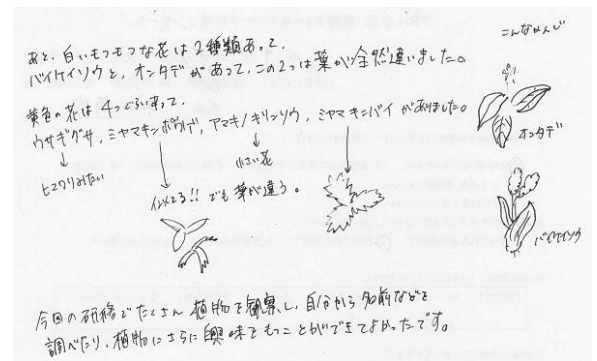 あと、白いもつもつな花は2種類あって、
バイケイソウと、オンタデがあって、この2つは葉が全然違いました。
こんなかんじ
オンタデ
バイケイソウ
黄色の花は4つぐらいあって、
ウサギグサ、ミヤマキンポウゲ、アマキノキリンソウ、ミヤマキンバイがありました。
ヒマワリみたい
小さい花
似てる!!でも葉が違う。
今回の研修でたくさん植物を観察し、自分から名前などを
調べたり、植物にさらに興味をもつことができてよかったです。